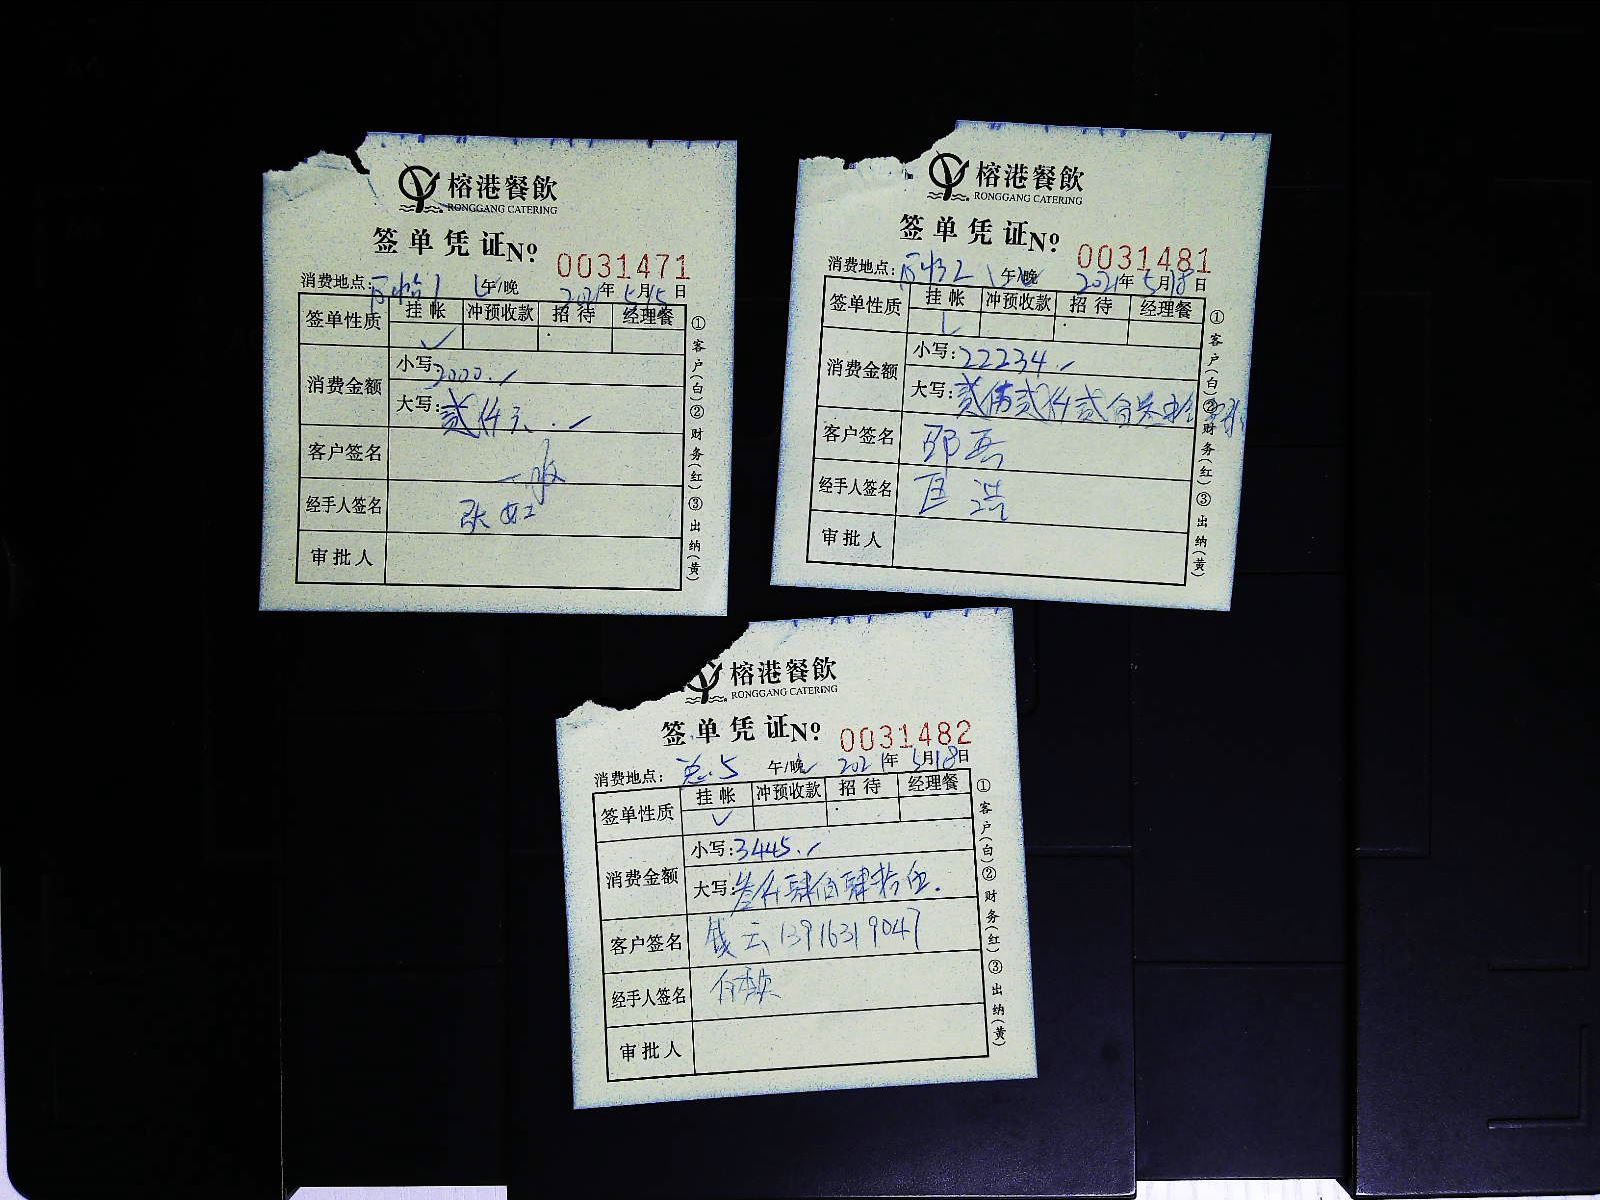 榕港餐飲
RONGGANG CATERING
签单凭证№ 0031471
消费地点： 午/晚 2021年5月15日
签单性质 挂帐 冲预收款 招待 经理餐
✓
消费金额 小写：2000.
大写：贰仟元.
客户签名
经手人签名 张
审批人
①客户(白)②财务(红)③出纳(黄)
榕港餐飲
RONGGANG CATERING
签单凭证№ 0031481
消费地点： 午/晚 2021年5月18日
签单性质 挂帐 冲预收款 招待 经理餐
✓
消费金额 小写：22234.
大写：贰万贰仟贰佰叁拾
客户签名
经手人签名 匡浩
审批人
①客户(白)②财务(红)③出纳(黄)
榕港餐飲
RONGGANG CATERING
签单凭证№ 0031482
消费地点： 5 午/晚✓ 2021年5月18日
签单性质 挂帐 冲预收款 招待 经理餐
✓
消费金额 小写：3445.
大写：叁仟肆佰肆拾伍.
客户签名 钱云 13916319047
经手人签名
审批人
①客户(白)②财务(红)③出纳(黄)